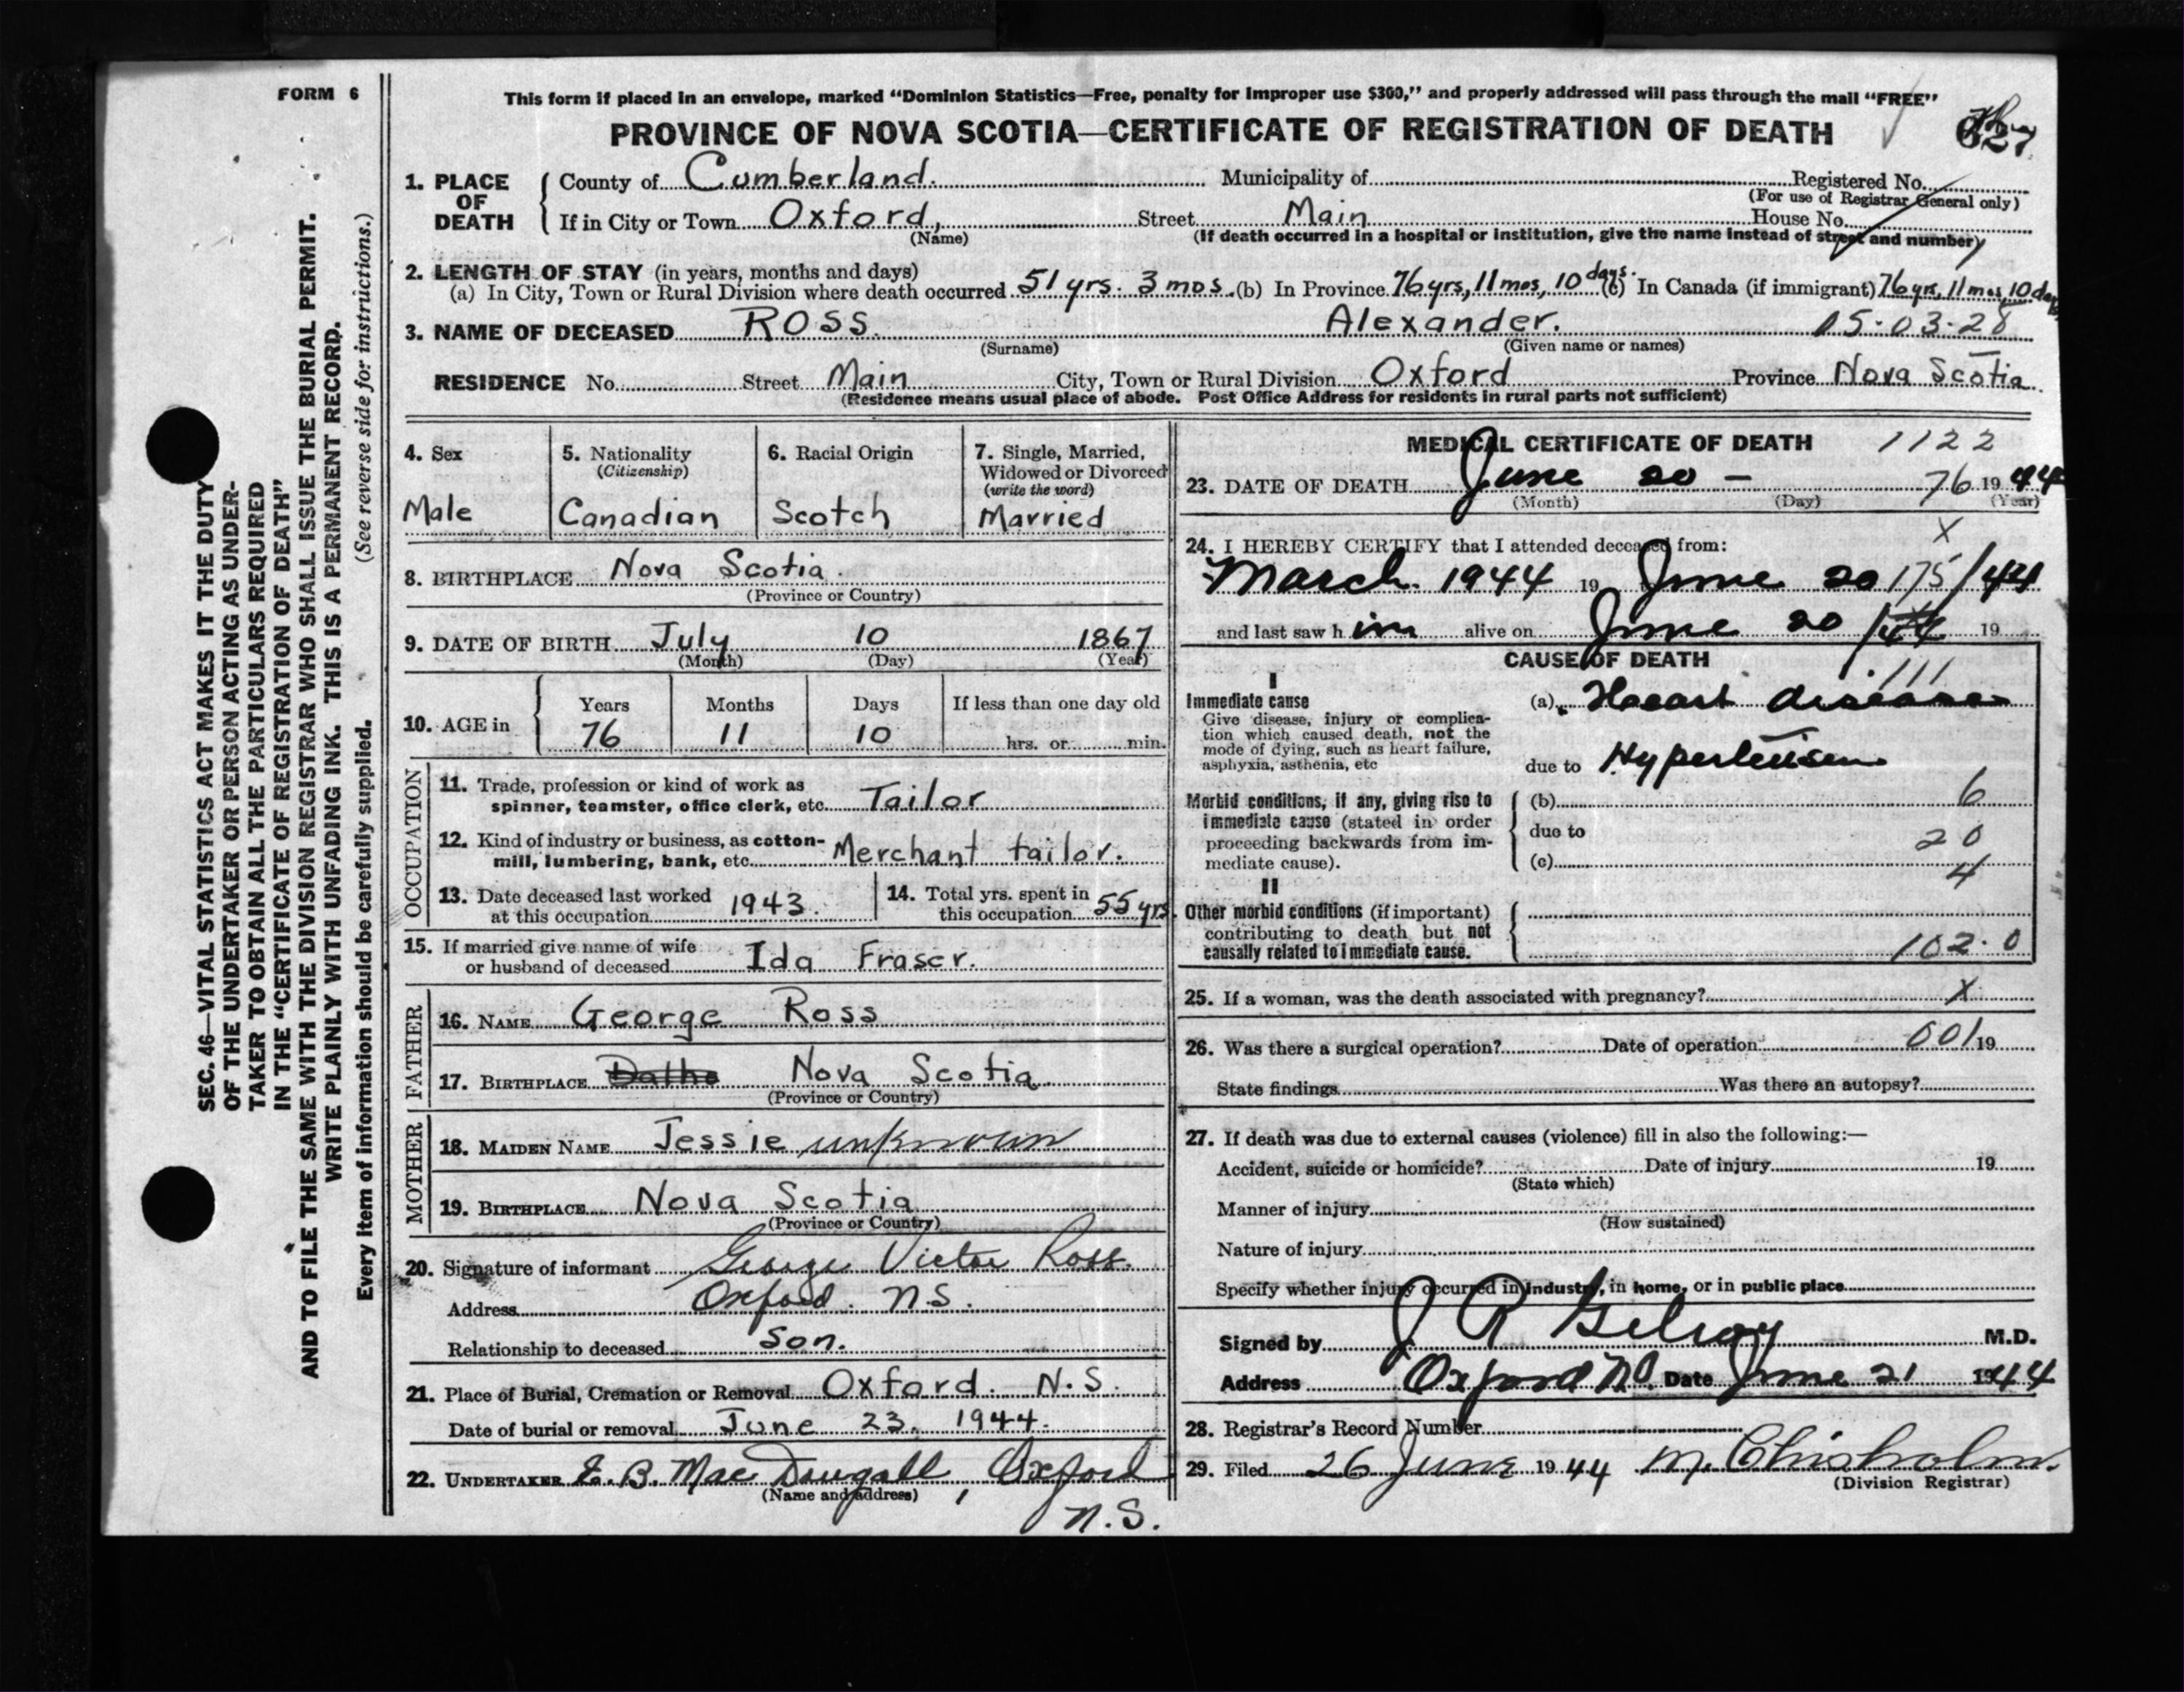 FORM 6
SEC. 46—VITAL STATISTICS ACT MAKES IT THE DUTY
OF THE UNDERTAKER OR PERSON ACTING AS UNDER-
TAKER TO OBTAIN ALL THE PARTICULARS REQUIRED
IN THE "CERTIFICATE OF REGISTRATION OF DEATH"
AND TO FILE THE SAME WITH THE DIVISION REGISTRAR WHO SHALL ISSUE THE BURIAL PERMIT.
WRITE PLAINLY WITH UNFADING INK. THIS IS A PERMANENT RECORD.
Every item of information should be carefully supplied. (See reverse side for instructions.)
This form if placed in an envelope, marked "Dominion Statistics—Free, penalty for improper use $300," and properly addressed will pass through the mail "FREE"
PROVINCE OF NOVA SCOTIA—CERTIFICATE OF REGISTRATION OF DEATH
1. PLACE OF DEATH
County of Cumberland. Municipality of Registered No.
(For use of Registrar General only)
If in City or Town Oxford, Street Main House No.
(Name) (If death occurred in a hospital or institution, give the name instead of street and number)
2. LENGTH OF STAY (in years, months and days)
(a) In City, Town or Rural Division where death occurred 51 yrs. 3 mos. (b) In Province 76 yrs, 11 mos, 10 days. (c) In Canada (if immigrant) 76 yrs, 11 mos, 10 days
3. NAME OF DECEASED ROSS. Alexander. 15-03-28
(Surname) (Given name or names)
RESIDENCE No. Street Main City, Town or Rural Division Oxford Province Nova Scotia.
(Residence means usual place of abode. Post Office Address for residents in rural parts not sufficient)
4. Sex
Male
5. Nationality
(Citizenship)
Canadian
6. Racial Origin
Scotch
7. Single, Married,
Widowed or Divorced
(write the word)
Married
8. BIRTHPLACE Nova Scotia.
(Province or Country)
9. DATE OF BIRTH July 10 1867
(Month) (Day) (Year)
10. AGE in
Years Months Days If less than one day old
76 11 10 hrs. or min.
OCCUPATION
11. Trade, profession or kind of work as
spinner, teamster, office clerk, etc. Tailor
12. Kind of industry or business, as cotton-
mill, lumbering, bank, etc. Merchant tailor.
13. Date deceased last worked
at this occupation 1943.
14. Total yrs. spent in
this occupation 55 yrs.
15. If married give name of wife
or husband of deceased Ida Fraser.
FATHER
16. NAME George Ross
17. BIRTHPLACE Nova Scotia
(Province or Country)
MOTHER
18. MAIDEN NAME Jessie unknown
19. BIRTHPLACE Nova Scotia
(Province or Country)
20. Signature of informant George Victor Ross.
Address Oxford. N.S.
Relationship to deceased Son.
21. Place of Burial, Cremation or Removal Oxford. N.S.
Date of burial or removal June 23, 1944.
22. UNDERTAKER B. MacDougall, Oxford
(Name and address)
N.S.
MEDICAL CERTIFICATE OF DEATH 1122
23. DATE OF DEATH June 20 — 76 19 44
(Month) (Day) (Year)
X
24. I HEREBY CERTIFY that I attended deceased from:
March 1944 19 June 20 175 /44
and last saw h im alive on June 20 /44 19
CAUSE OF DEATH
111
I
Immediate cause
Give disease, injury or complica-
tion which caused death, not the
mode of dying, such as heart failure,
asphyxia, asthenia, etc
(a) Heart disease
due to Hypertension
Morbid conditions, if any, giving rise to
immediate cause (stated in order
proceeding backwards from im-
mediate cause).
(b) 6
due to 20
(c) 4
II
Other morbid conditions (if important)
contributing to death but not
causally related to immediate cause.
102.0
25. If a woman, was the death associated with pregnancy? X
26. Was there a surgical operation? Date of operation 001 19
State findings Was there an autopsy?
27. If death was due to external causes (violence) fill in also the following:—
Accident, suicide or homicide? Date of injury 19
(State which)
Manner of injury
(How sustained)
Nature of injury
Specify whether injury occurred in industry, in home, or in public place
Signed by J R Gilroy M.D.
Address Oxford NS. Date June 21 1944
28. Registrar's Record Number
29. Filed 26 June 19 44 M. Chisholm.
(Division Registrar)